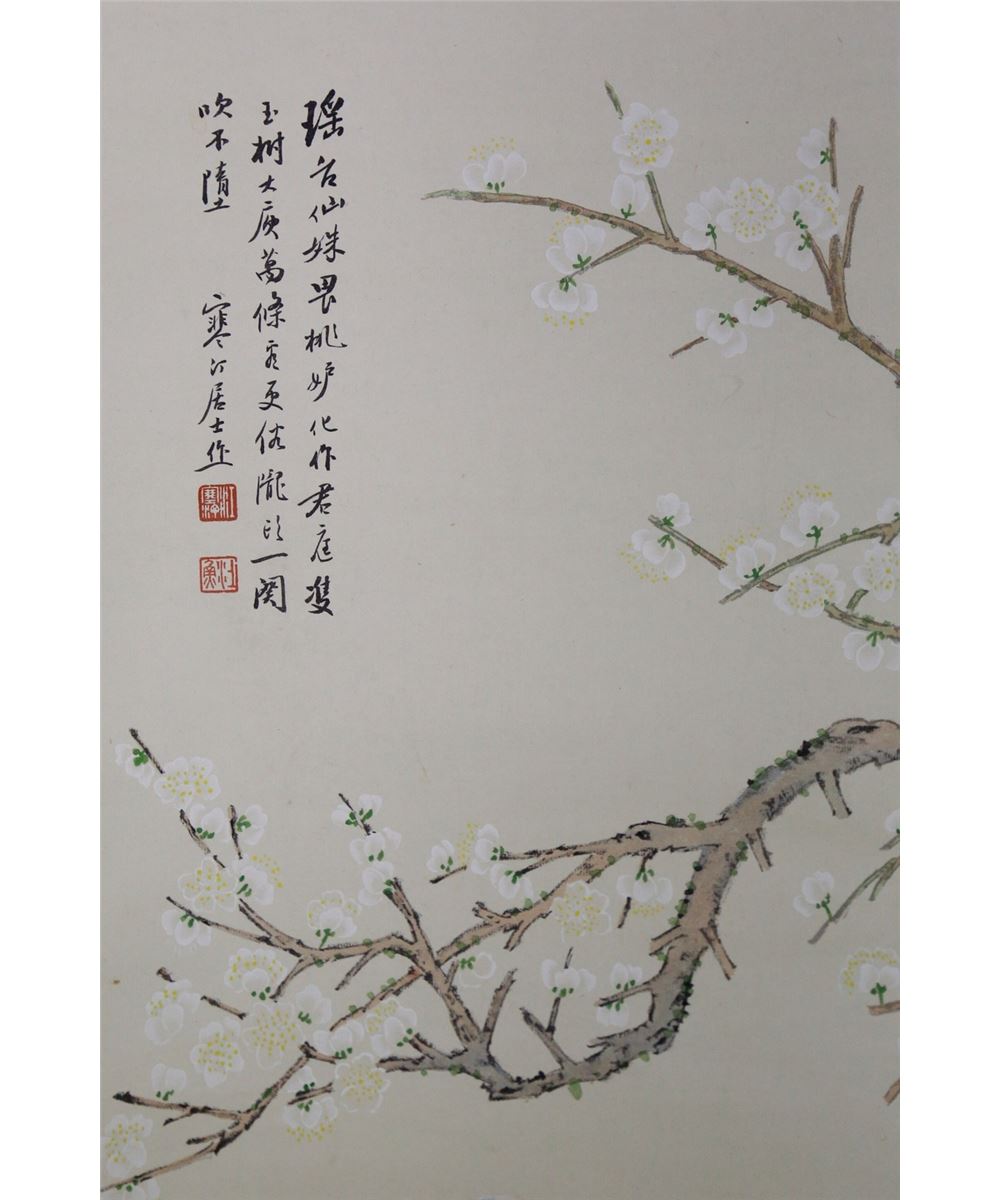 瑶台仙姝畏桃妒化作君庭雙
玉樹大庾萬條看更俗隴頭一闋
吹不墮
寒汀居士作
寒汀